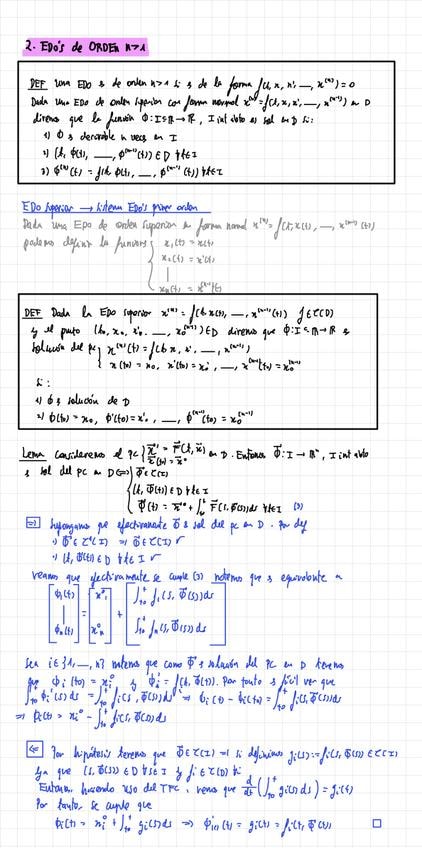 2. EDO's de ORDEN n>1
DEF una EDO s de orden n>1 si s de la forma f(t, x, x', __, x^(n)) = 0
Dada una EDO de orden superior con forma normal x^(n) = f(t, x, x', __, x^(n-1)) en D
diremos que la función Φ: I⊆ℝ→ℝ, I int abto es sol en D si:
1) Φ s derivable n veces en I
2) (t, Φ(t), __, Φ^(n-1)(t)) ∈ D ∀t∈I
3) Φ^(n)(t) = f(t, Φ(t), __, Φ^(n-1)(t)) ∀t∈I
EDO superior → sistema EDO's primer orden
Dada una EDO de orden superior en forma normal x^(n) = f(t, x(t), __, x^(n-1)(t))
podemos definir las funciones { x₁(t) = x(t)
x₂(t) = x'(t)
|
xₙ(t) = x^(n-1)(t)
DEF Dada la EDO superior x^(n) = f(t, x(t), __, x^(n-1)(t)) f∈C(D)
y el punto (t₀, x₀, x'₀, __, x₀^(n-1)) ∈ D diremos que Φ: I⊆ℝ→ℝ s
solución del PC { x^(n)(t) = f(t, x, x', __, x^(n-1))
x(t₀) = x₀, x'(t₀) = x'₀, __, x^(n-1)(t₀) = x₀^(n-1)
si:
1) Φ s solución de D
2) Φ(t₀) = x₀, Φ'(t₀) = x'₀, __, Φ^(n-1)(t₀) = x₀^(n-1)
Lema Consideremos el PC { x⃗' = F⃗(t, x⃗) en D. Entonces Φ⃗: I → ℝⁿ, I int abto
x⃗(t₀) = x⃗⁰
s sol del PC en D ⟺ { Φ⃗ ∈ C(I)
(t, Φ⃗(t)) ∈ D ∀t∈I
Φ⃗(t) = x⃗⁰ + ∫_{t₀}^t F⃗(s, Φ⃗(s))ds ∀t∈I (3)
⇒ Supongamos que efectivamente Φ⃗ s sol del PC en D. Por def
1) Φ⃗ ∈ C¹(I) ⇒ Φ⃗ ∈ C(I) ✓
2) (t, Φ⃗(t)) ∈ D ∀t∈I ✓
veamos que efectivamente se cumple (3) notemos que s equivalente a
[Φ₁(t) | Φₙ(t)] = [x₁⁰ | xₙ⁰] + [∫_{t₀}^t f₁(s, Φ⃗(s))ds | ∫_{t₀}^t fₙ(s, Φ⃗(s))ds]
Sea i∈{1, __, n} notemos que como Φ⃗ s solución del PC en D tenemos
que Φᵢ(t₀) = xᵢ⁰ y Φᵢ' = fᵢ(t, Φ⃗(t)). Por tanto s fácil ver que
∫_{t₀}^t Φᵢ'(s)ds = ∫_{t₀}^t fᵢ(s, Φ⃗(s))ds ⇒ Φᵢ(t) - Φᵢ(t₀) = ∫_{t₀}^t fᵢ(s, Φ⃗(s))ds
⇒ Φᵢ(t) = xᵢ⁰ - ∫_{t₀}^t fᵢ(s, Φ⃗(s))ds
⇐ Por hipótesis tenemos que Φ⃗ ∈ C(I) ⇒ si definimos gᵢ(s) := fᵢ(s, Φ⃗(s)) ∈ C(I)
ya que (s, Φ⃗(s)) ∈ D ∀s∈I y fᵢ ∈ C(D) ∀i
Entonces, haciendo uso del TFC, vemos que d/dt(∫_{t₀}^t gᵢ(s)ds) = gᵢ(t)
Por tanto, se cumple que
Φᵢ(t) = xᵢ⁰ + ∫_{t₀}^t gᵢ(s)ds ⇒ Φᵢ'(t) = gᵢ(t) = fᵢ(t, Φ⃗(t)) □